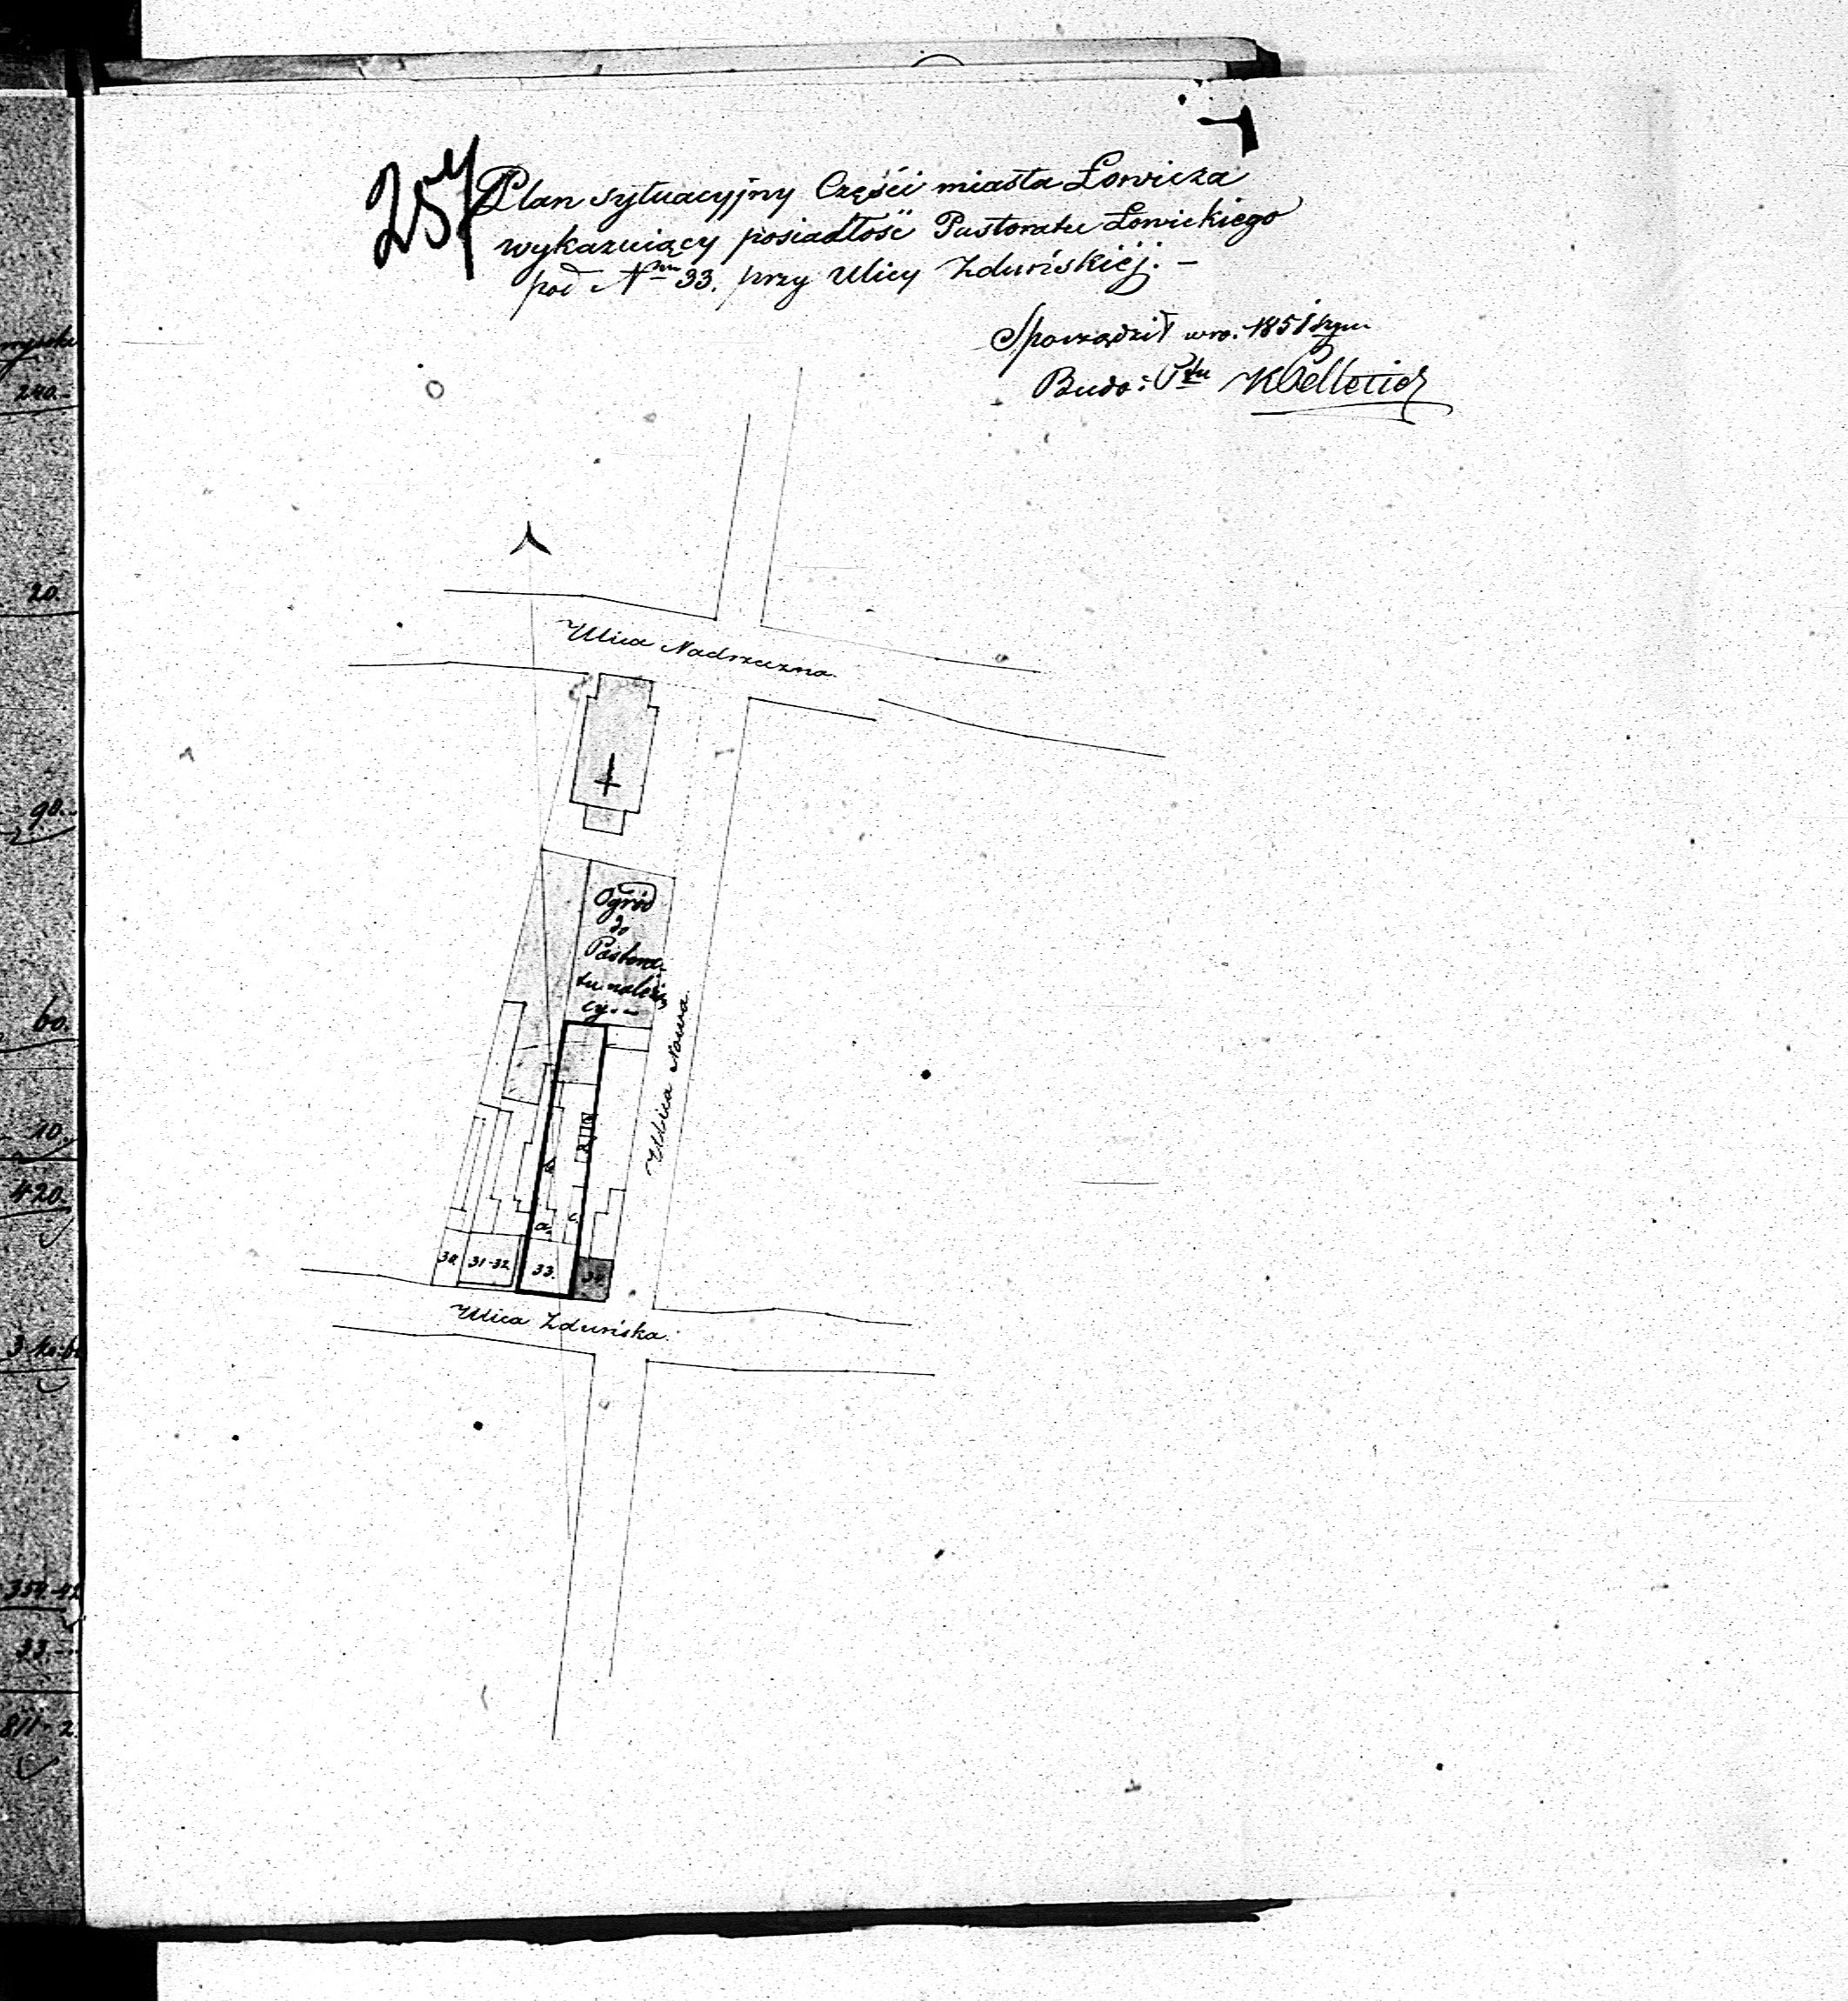 257
Plan sytuacyjny Części miasta Łowicza
wykazuiący posiadłość Pastoratu Łowickiego
pod Nrm 33. przy Ulicy Zduńskiéj. –
Sporządził w ro: 1851szym
Budo: Ptu
Ulica Nadrzeczna.
Ogród
do
Pastora-
tu należą-
cy. –
Ulica Nowa.
a.
c.
30. 31-32. 33. 34.
Ulica Zduńska.
240.-
20.
90.
60.
10.
420.
354-42
33.-
811-2